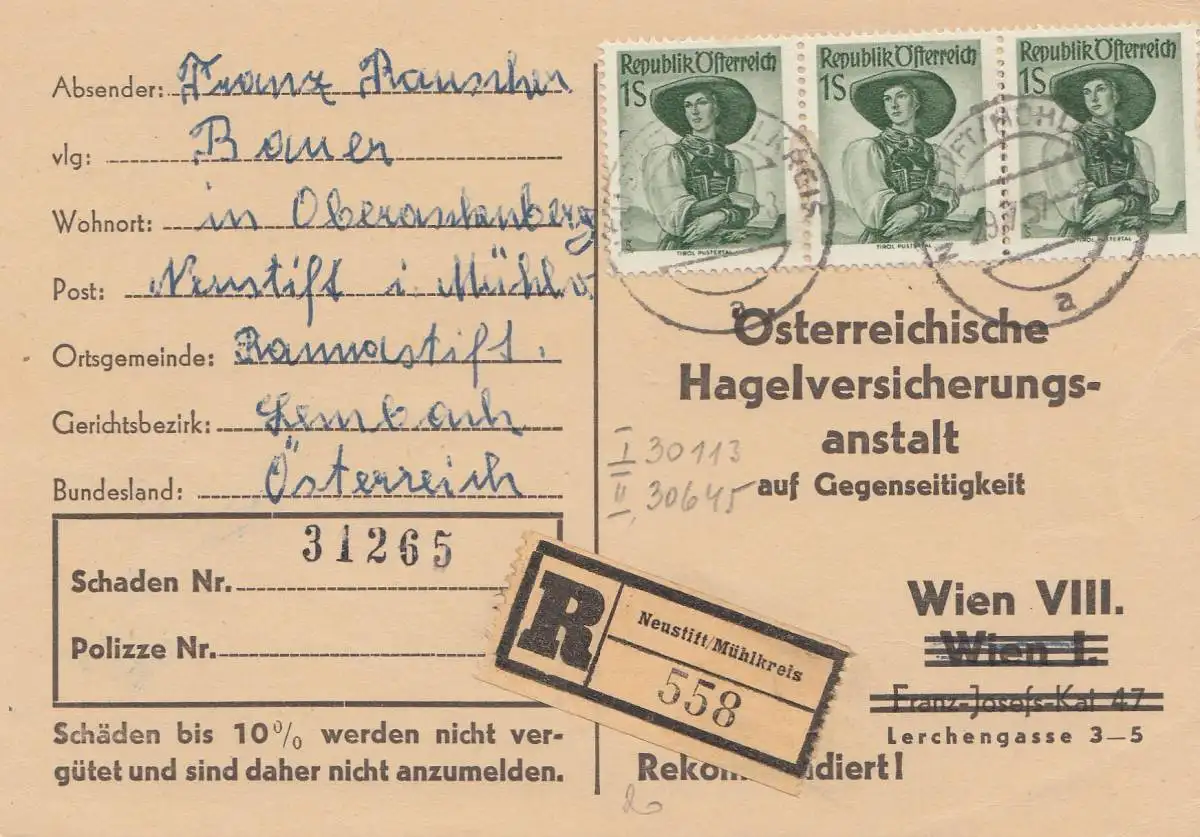 Absender: Franz Rauscher
vlg: Bauer
Wohnort: in Oberaschenberg
Post: Neustift i. Mühlv
Ortsgemeinde: Rannastift.
Gerichtsbezirk: Lembach
Bundesland: Österreich
31265
Schaden Nr.
Polizze Nr.
Schäden bis 10% werden nicht ver-
gütet und sind daher nicht anzumelden.
Republik Österreich
1S
TIROL PUSTERTAL
Republik Österreich
1S
TIROL PUSTERTAL
Republik Österreich
1S
TIROL PUSTERTAL
a
29.7.57
a
Österreichische
Hagelversicherungs-
anstalt
auf Gegenseitigkeit
I 30113
II 30645
R
Neustift/Mühlkreis
558
Wien VIII.
Wien I.
Franz-Josefs-Kai 47
Lerchengasse 3—5
Rekom diert!